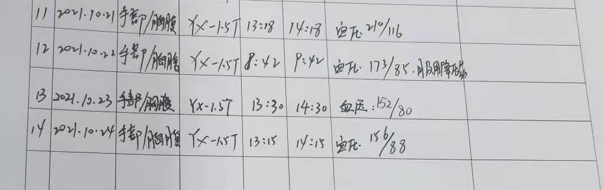 11 2021.10.21 手部/胸腹 YX-1.5T 13:18 14:18 血压 210/116
12 2021.10.22 手部/胸腹 YX-1.5T 8:42 9:42 血压: 173/85.
13 2021.10.23 手部/胸腹 YX-1.5T 13:30 14:30 血压:152/80
14 2021.10.24 手部/胸腹 YX-1.5T 13:15 14:15 血压: 156/88